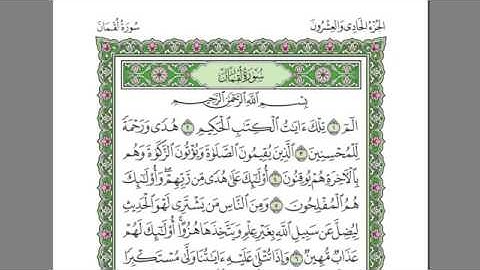 سُورَةُ لُقْمَان
الجُزْءُ الحَادِي وَالعِشْرُونَ
سُورَةُ لُقْمَان
بِسْمِ اللَّهِ الرَّحْمَٰنِ الرَّحِيمِ
الٓمٓ ١ تِلْكَ ءَايَٰتُ الْكِتَٰبِ الْحَكِيمِ ٢ هُدًى وَرَحْمَةً
لِّلْمُحْسِنِينَ ٣ الَّذِينَ يُقِيمُونَ الصَّلَوٰةَ وَيُؤْتُونَ الزَّكَوٰةَ وَهُم
بِالْءَاخِرَةِ هُمْ يُوقِنُونَ ٤ أُو۟لَٰٓئِكَ عَلَىٰ هُدًى مِّن رَّبِّهِمْ وَأُو۟لَٰٓئِكَ
هُمُ الْمُفْلِحُونَ ٥ وَمِنَ النَّاسِ مَن يَشْتَرِى لَهْوَ الْحَدِيثِ
لِيُضِلَّ عَن سَبِيلِ اللَّهِ بِغَيْرِ عِلْمٍ وَيَتَّخِذَهَا هُزُوًا أُو۟لَٰٓئِكَ لَهُمْ
عَذَابٌ مُّهِينٌ ٦ وَإِذَا تُتْلَىٰ عَلَيْهِ ءَايَٰتُنَا وَلَّىٰ مُسْتَكْبِرًا